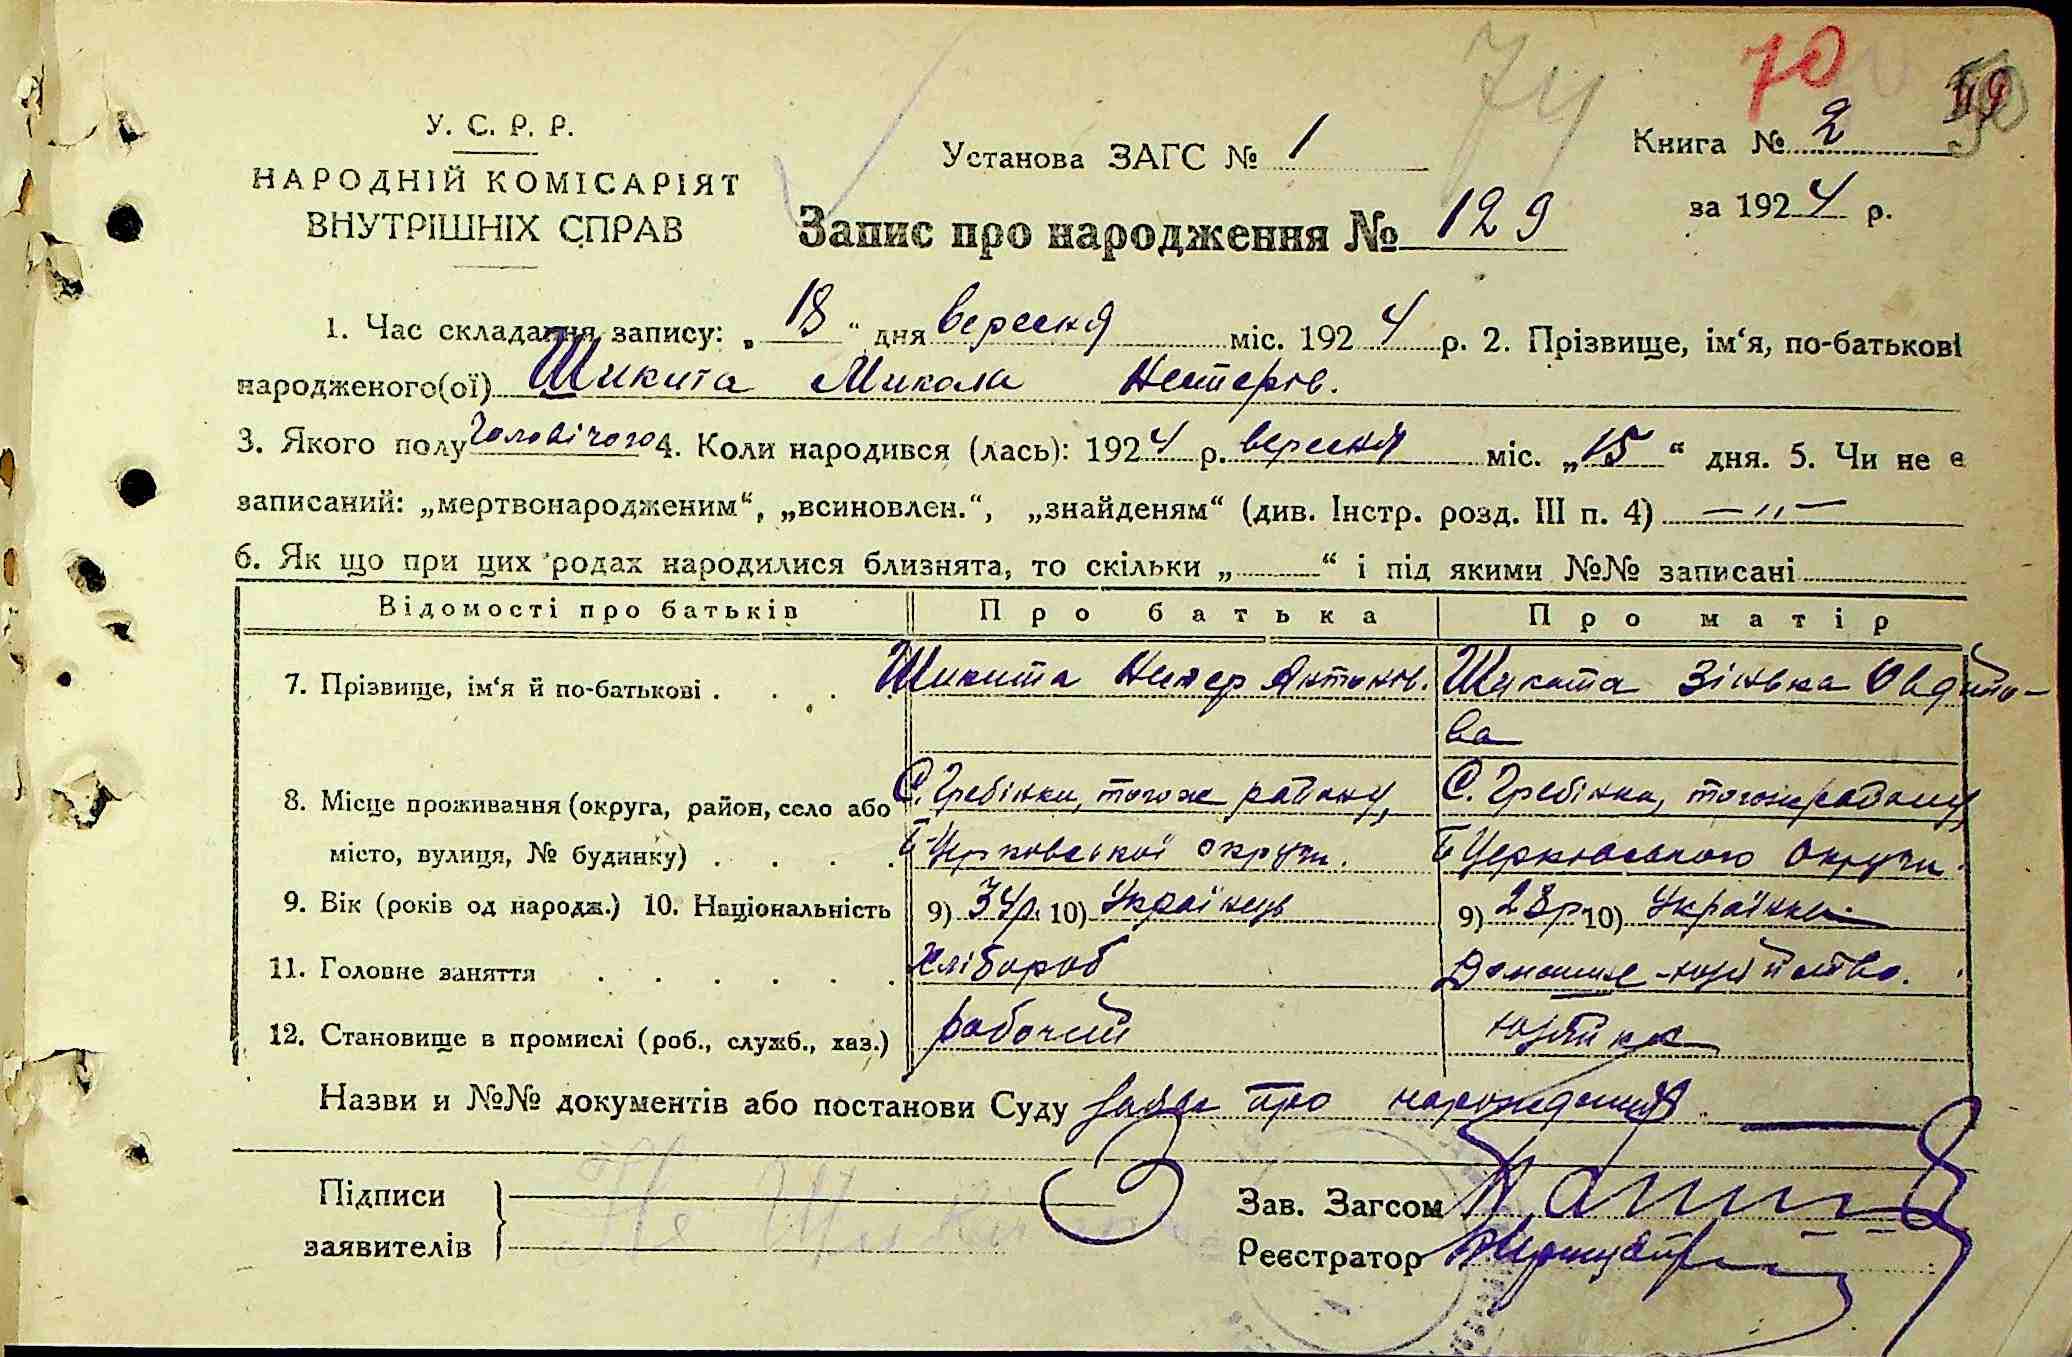 74
70
У. С. Р. Р.
НАРОДНІЙ КОМІСАРІЯТ
ВНУТРІШНІХ СПРАВ
Установа ЗАГС № 1
Книга № 2
за 1924 р.
Запис про народження № 129
1. Час складання запису: „ 18 “ дня вересня міс. 1924 р. 2. Прізвище, ім‘я, по-батькові
народженого(ої) Шикита Микола Нестерів.
3. Якого полу Чоловічого 4. Коли народився (лась): 1924 р. вересня міс. „15“ дня. 5. Чи не є
записаний: „мертвонародженим“, „всиновлен.“, „знайденям“ (див. Інстр. розд. III п. 4) —〃—
6. Як що при цих родах народилися близнята, то скільки „ “ і під якими №№ записані
Відомості про батьків Про батька Про матір
7. Прізвище, ім‘я й по-батькові . . . Шикита Нестер Антонів. Шикита Зінька Овдійо-
ва
8. Місце проживання (округа, район, село або С. Гребінки, тогож району, С. Гребінки, тогож району,
місто, вулиця, № будинку) . . . . Б Церковської округи. Б Церковського округи.
9. Вік (років од народж.) 10. Національність 9) 34р. 10) Українець 9) 28р 10) Українка
11. Головне заняття . . . . . . хлібороб Домашнє-хазяйство.
12. Становище в промислі (роб., служб., хаз.) рабочий хазяйка
Назви и №№ документів або постанови Суду заява про народження
Підписи
заявителів
Зав. Загсом
Реєстратор